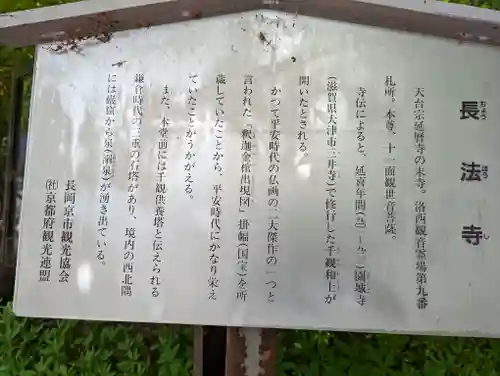 長法寺
おちょうほうじ
天台宗延暦寺の末寺。洛西観音霊場第九番
札所。本尊、十一面観世音菩薩。
寺伝によると、延喜年間(～)園城寺
(滋賀県大津市三井寺)で修行した千観和上が
開いたとされる。
かつて平安時代の仏画の二大傑作の一つと
言われた「釈迦金棺出現図」掛幅(国宝)を所
蔵していたことから、平安時代にかなり栄え
ていたことがうかがえる。
また、本堂前には千観供養塔と伝えられる
鎌倉時代の三重の石塔があり、境内の西北隅
には巌窟から泉(湧泉)が湧き出ている。
長岡京市観光協会
(社)京都府観光連盟